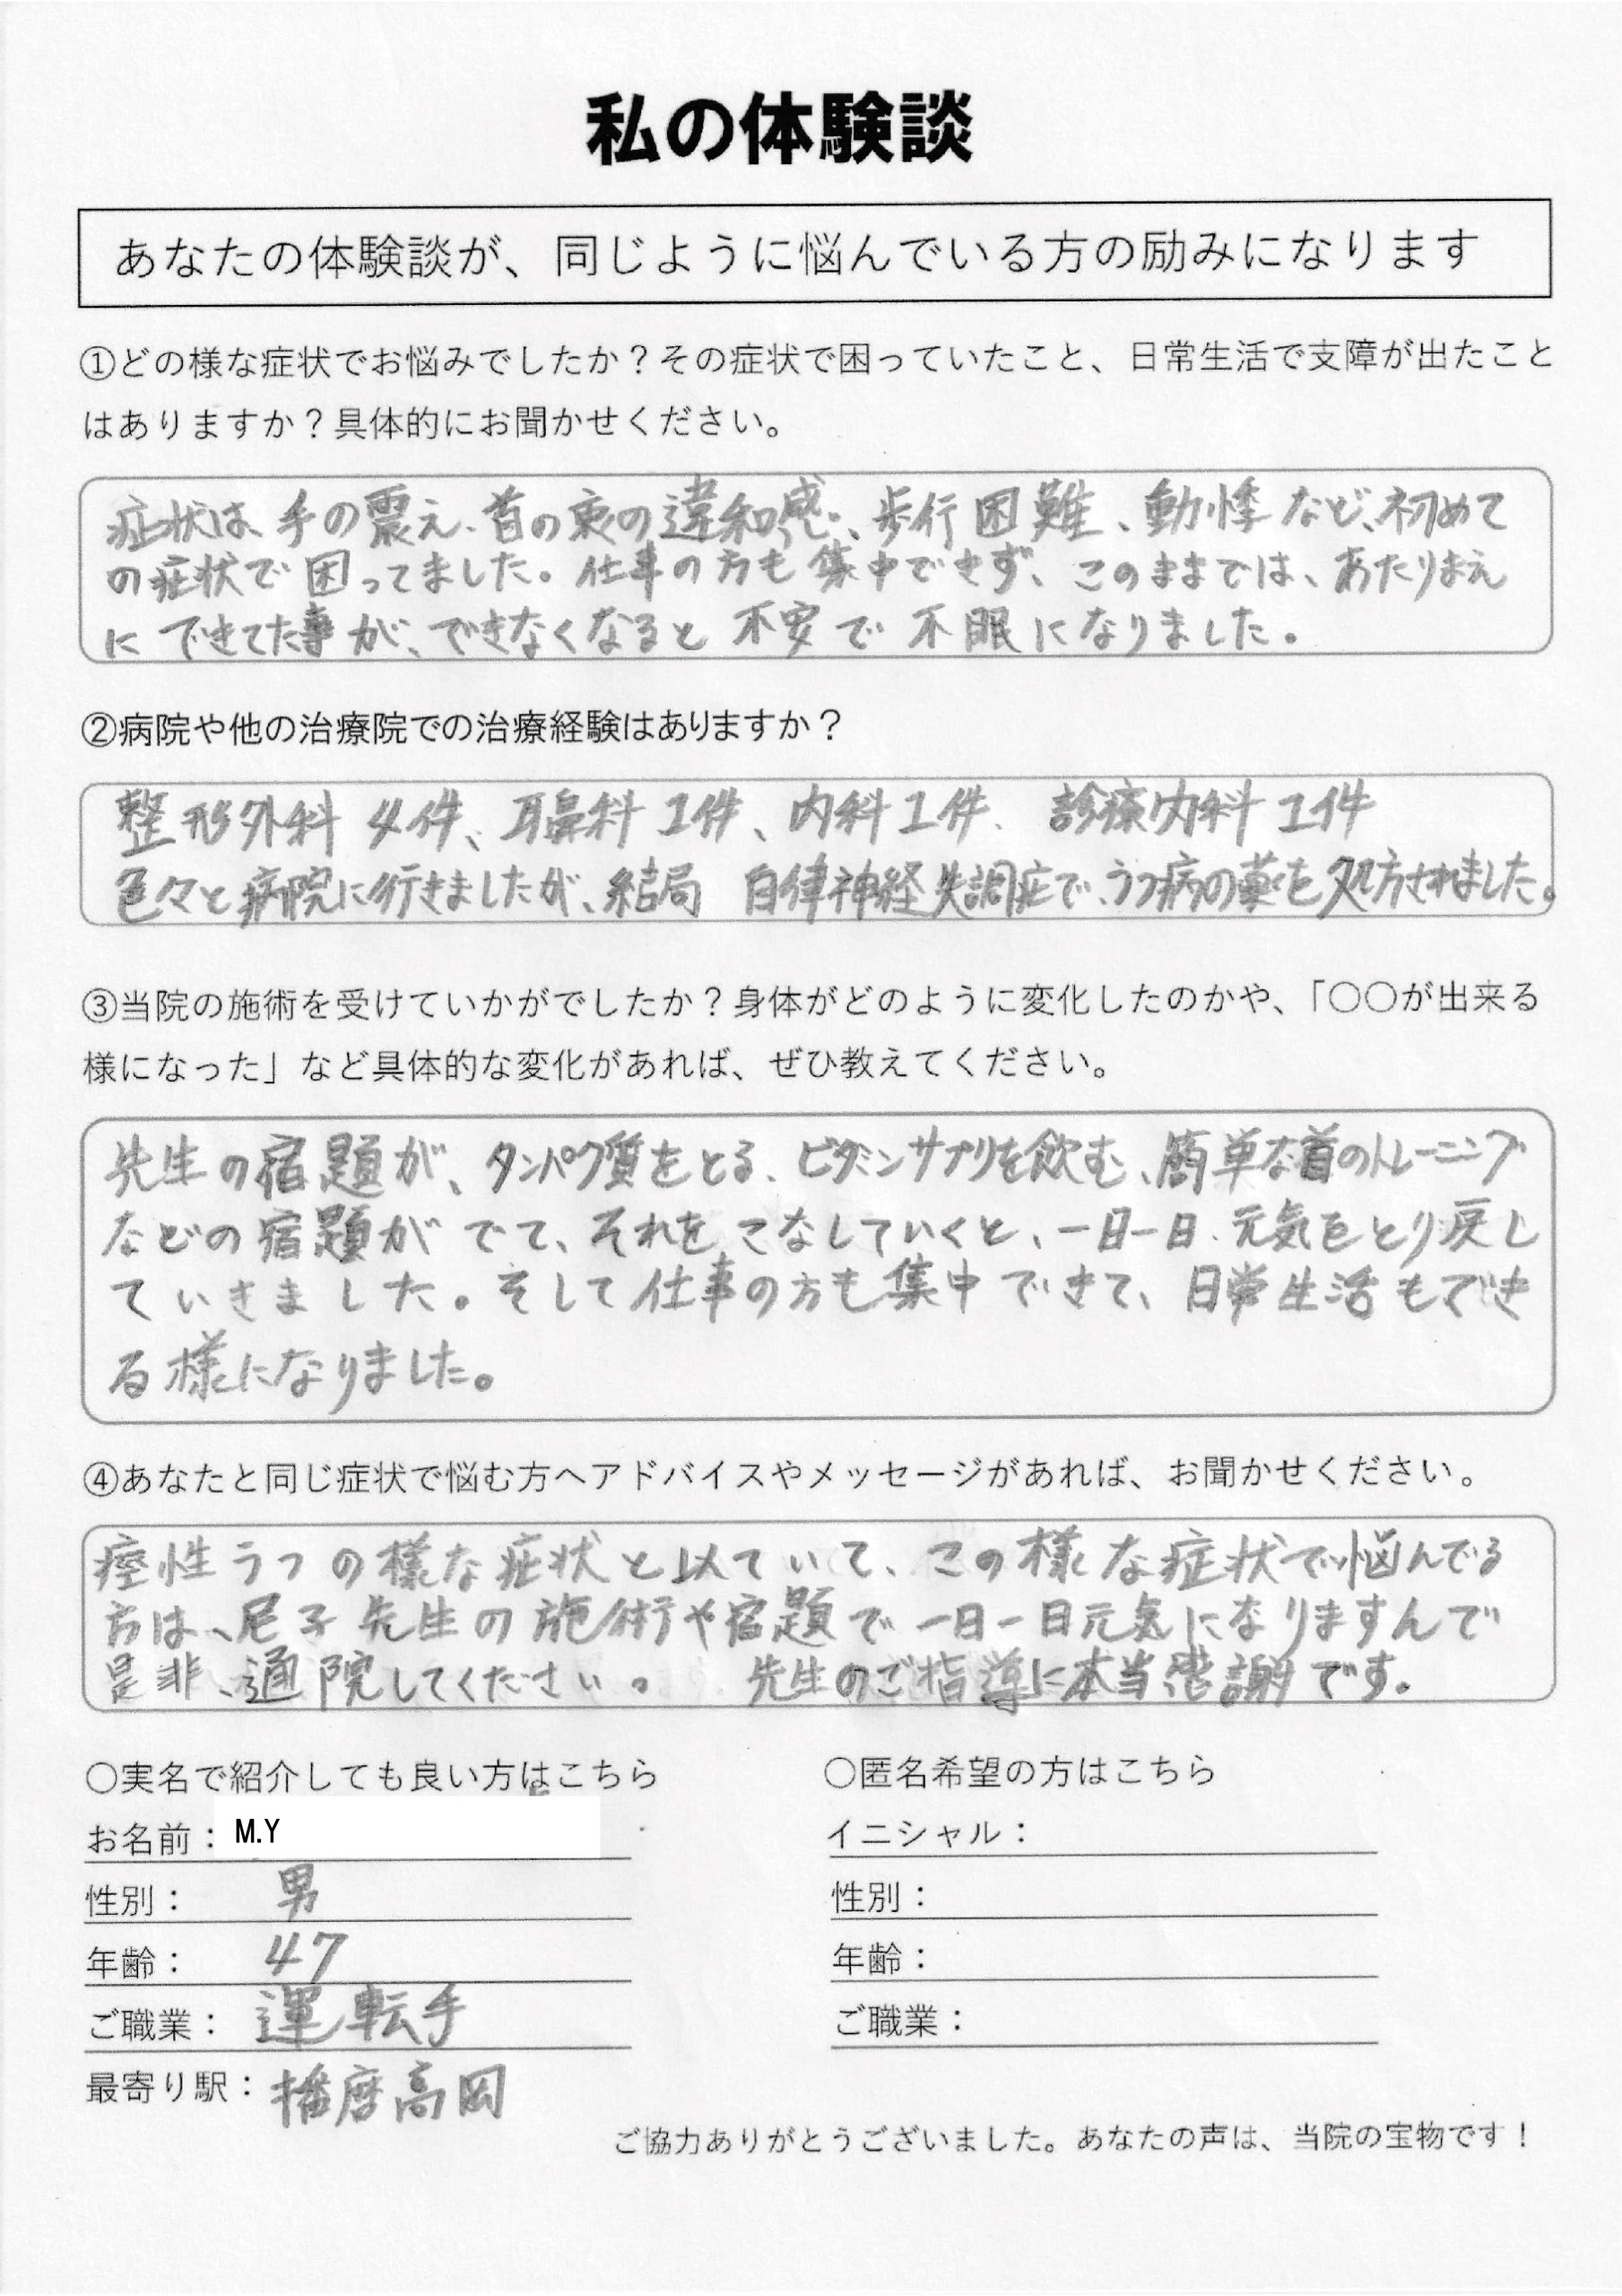 私の体験談
あなたの体験談が、同じように悩んでいる方の励みになります
①どの様な症状でお悩みでしたか？その症状で困っていたこと、日常生活で支障が出たこと
はありますか？具体的にお聞かせください。
症状は、手の震え、首の裏の違和感、歩行困難、動悸など、初めて
の症状で困ってました。仕事の方も集中できず、このままでは、あたりまえ
にできてた事が、できなくなると不安で不眠になりました。
②病院や他の治療院での治療経験はありますか？
整形外科4件、耳鼻科1件、内科1件、診療内科1件
色々と病院に行きましたが、結局 自律神経失調症で、うつ病の薬を処方されました。
③当院の施術を受けていかがでしたか？身体がどのように変化したのかや、「〇〇が出来る
様になった」など具体的な変化があれば、ぜひ教えてください。
先生の宿題が、タンパク質をとる、ビタミンサプリを飲む、簡単な首のトレーニング
などの宿題がでて、それをこなしていくと、一日一日、元気をとり戻し
ていきました。そして仕事の方も集中できて、日常生活もでき
る様になりました。
④あなたと同じ症状で悩む方へアドバイスやメッセージがあれば、お聞かせください。
性うつの様な症状と似ていて、この様な症状で悩んでる
方は、尼子先生の施術や宿題で一日一日元気になりますんで
是非、通院してください。 先生のご指導に本当感謝です。
〇実名で紹介しても良い方はこちら
お名前：M.Y
性別：男
年齢：47
ご職業：運転手
最寄り駅：播磨高岡
〇匿名希望の方はこちら
イニシャル：
性別：
年齢：
ご職業：
ご協力ありがとうございました。あなたの声は、当院の宝物です！